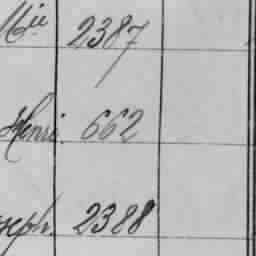 Mie 2387
Henri. 662
seph. 2388